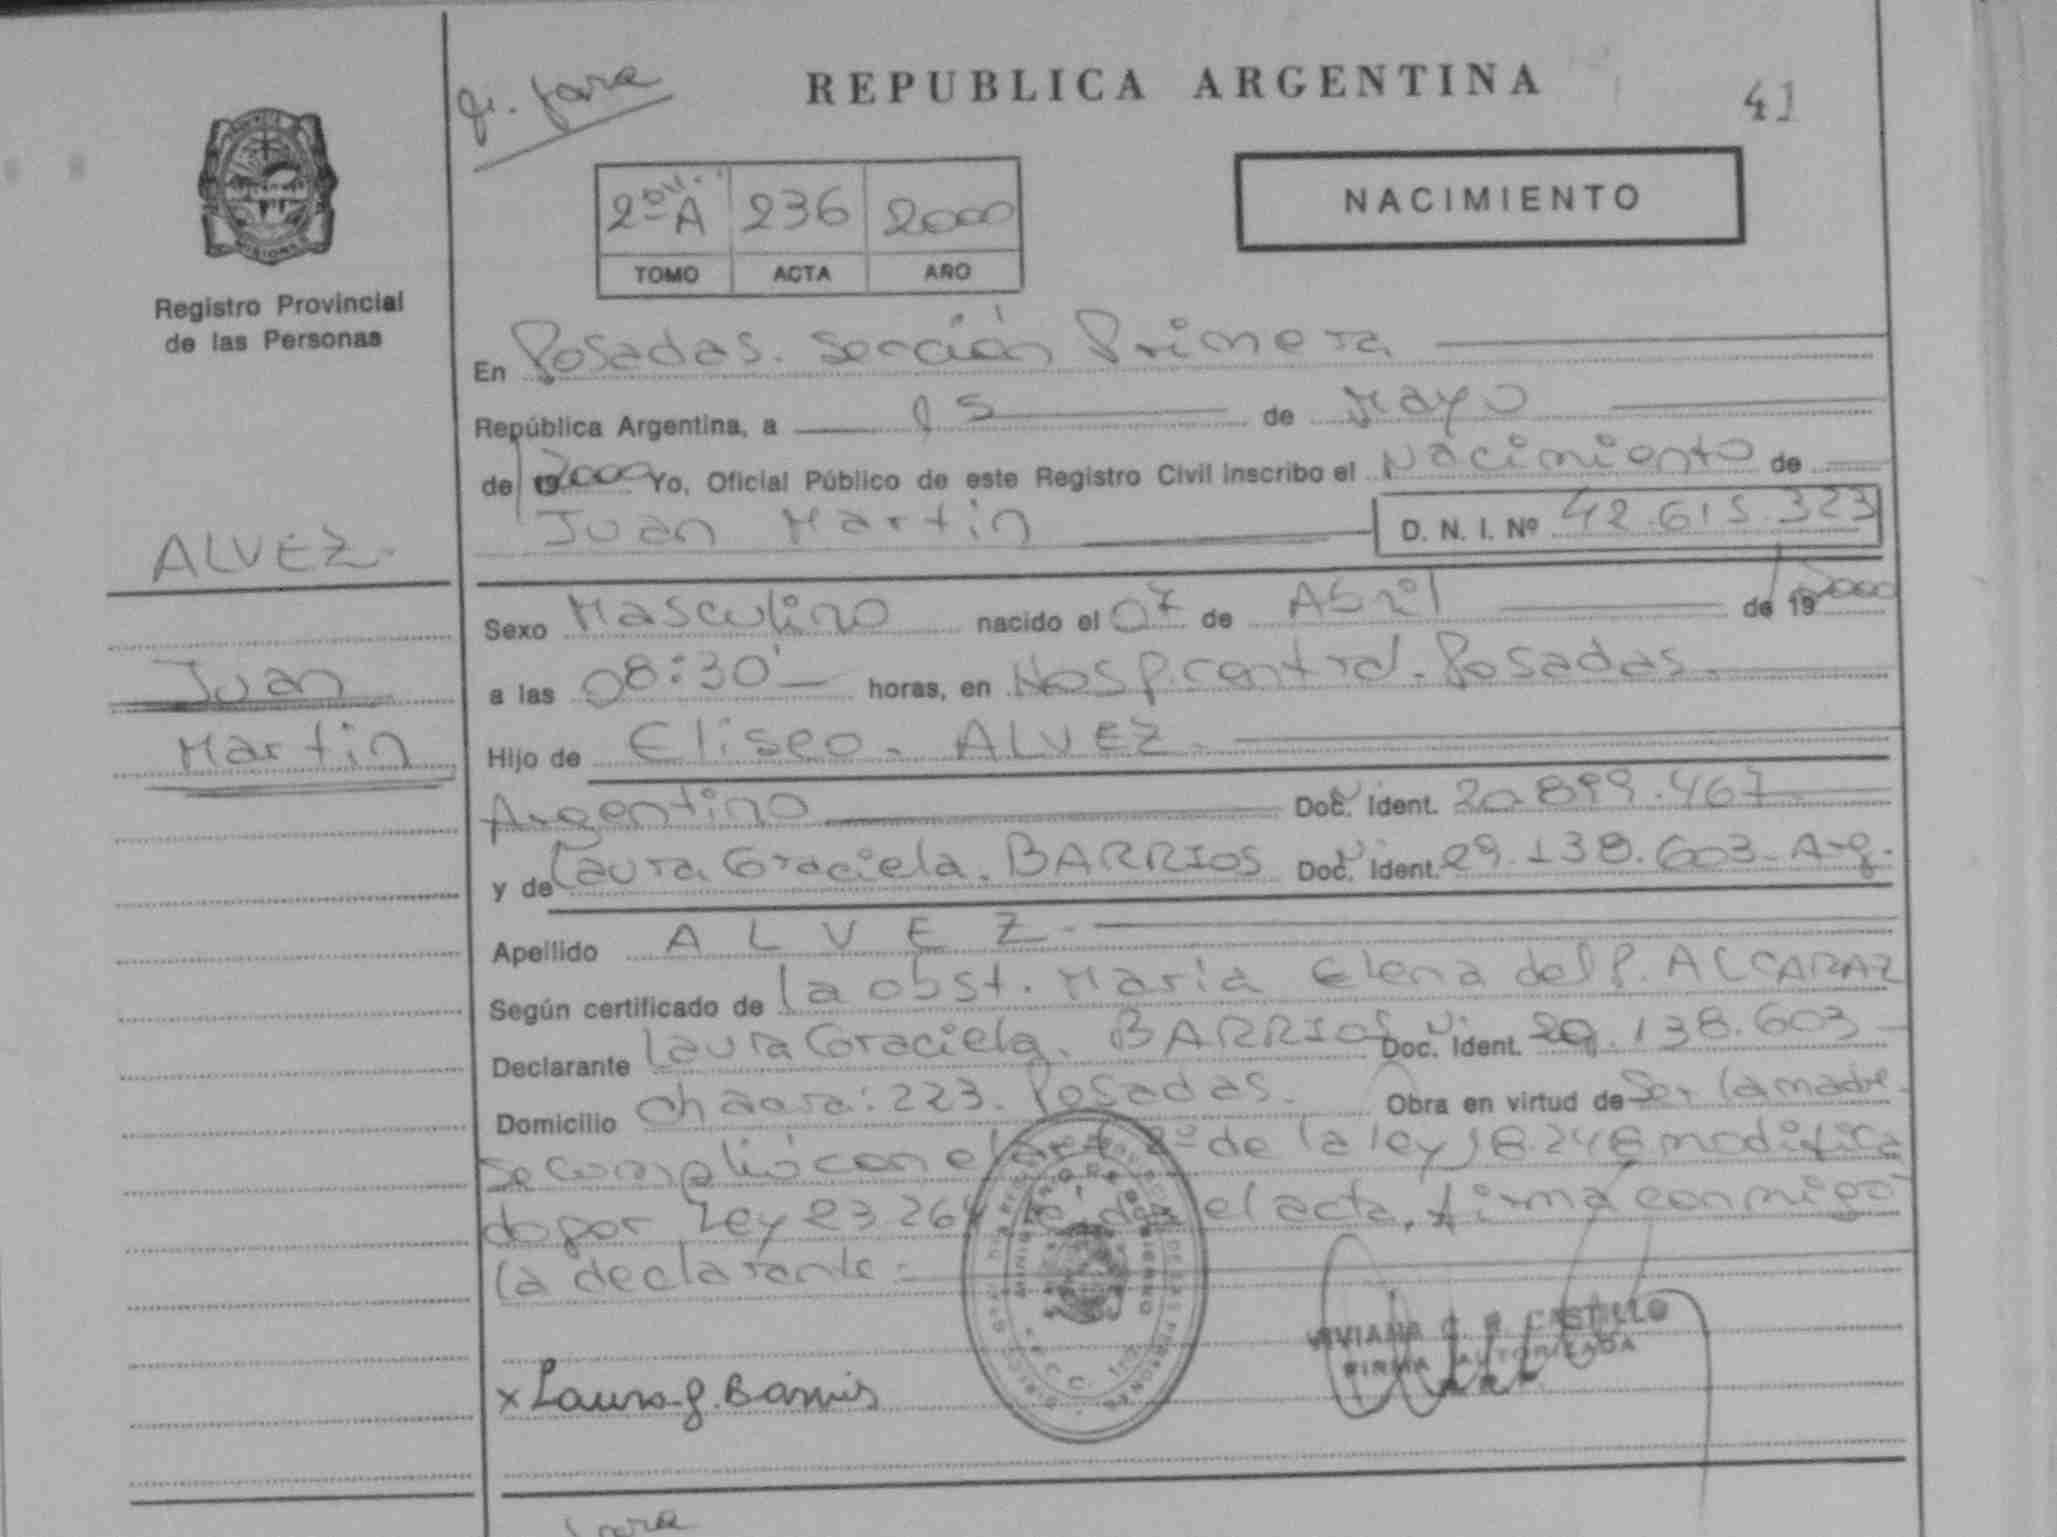 REPUBLICA ARGENTINA
41
2º A 236 2000
TOMO ACTA AÑO
NACIMIENTO
Registro Provincial
de las Personas
En Posadas. Sección Primera
República Argentina, a 15 de Mayo
de 2000 Yo, Oficial Público de este Registro Civil inscribo el Nacimiento de
Juan Martin D. N. I. Nº 42.615.323
ALVEZ
Juan
Martin
Sexo Masculino nacido el 07 de Abril de 19 2000
a las 08:30 horas, en Hosp. central. Posadas.
Hijo de Eliseo. ALVEZ.
Argentino Doc. Ident. 20.899.467
y de Laura Graciela. BARRIOS Doc. Ident. 29.138.603- Arg.
Apellido ALVEZ.
Según certificado de la obst. Maria Elena del P. ALCARAZ
Declarante Laura Graciela. BARRIOS Doc. Ident. 29.138.603
Domicilio Chacra: 223. Posadas. Obra en virtud de Ser la madre.
Se cumplió con el art 2º de la ley 18.248 modifica
do por Ley 23.264 el acta, firma conmigo
la declarante
VIVIANA C. R. CASTILLO
FIRMA AUTORIZADA
x Laura G. Barrios